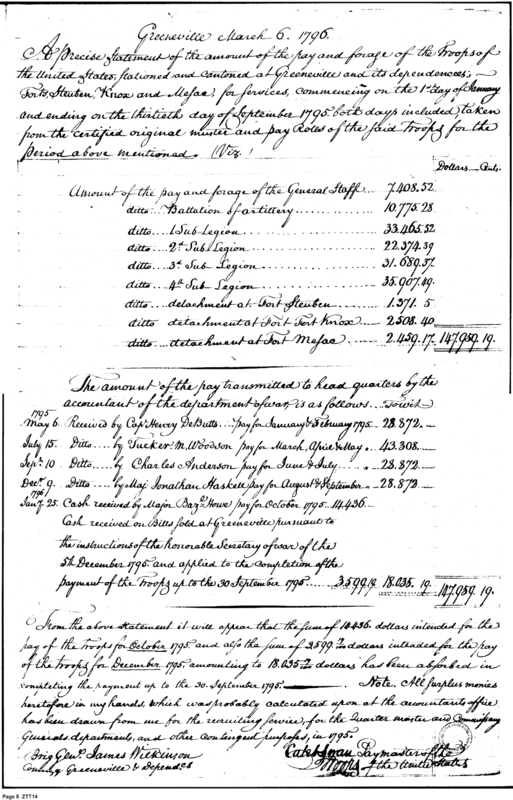 Greeneville March 6. 1796.
A Precise Statement of the amount of the pay and forage of the Troops of
the United States, stationed and cantoned at Greeneville and its dependencies;
Forts, Steuben, Knox and Mesac, for services, commencing on the 1st day of January
and ending on the thirtieth day of September 1795 both days included, taken
from the certified original muster and pay Roles of the said Troops for the
Period above mentioned. (Viz.)
Dollars Cents.
Amount of the pay and forage of the General Staff 7.408.52
ditto Battalion of artillery 10.775.28
ditto 1 Sub Legion 33.465.52
ditto 2d Sub Legion 22.374.39
ditto 3d Sub Legion 31.689.57
ditto 4th Sub Legion 35.907.49
ditto detachment at Fort Steuben 1.371. 5
ditto detachment at Fort Fort Knox 2508. 40
ditto detachment at Fort Mesac 2.459.17 147,959. 19.
The amount of the pay transmitted to head quarters by the
accountant of the department of war, is as follows Towit
1795
May 6 Received by Cap. Henry DeButts pay for January & February 1795 28.872.
July 15 Ditto by Tucker. M. Woodson pay for March, April & May 43.308.
Sept. 10 Ditto by Charles Anderson pay for June & July 28.872
Decr. 9 Ditto by Maj. Jonathan Haskell pay for August & September 28.872
1796
Jany. 25. Cash received by Major Howe pay for October 1795 14.436
Cash received on Bills sold at Greeneville pursuant to
the instructions of the honorable Secretary of war of the
5th December 1795 and applied to the completion of the
payment of the Troops up to the 30 September 1795 3.599.19 18.035. 19. 147,959. 19.
From the above statement it will appear that the sum of 14.436. dollars intended for the
pay of the troops for October 1795 and also the sum of 3599. dollars intended for the pay
of the troops for December 1795 amounting to 18.035. dollars has been absorbed in
completing the payment up to the 30. September 1795. Note, All surplus monies
heretofore in my hands which was probably calculated upon at the accountants office
has been drawn from me for the recruiting service, for the Quarter master and Commissary
Generals departments, and other contingent purposes, in 1795.
Brig Genl. James Wilkinson Caleb Swan Paymaster of the
Comg. Greeneville & Dependcs Troops of the United States
Page 6 ZTT14